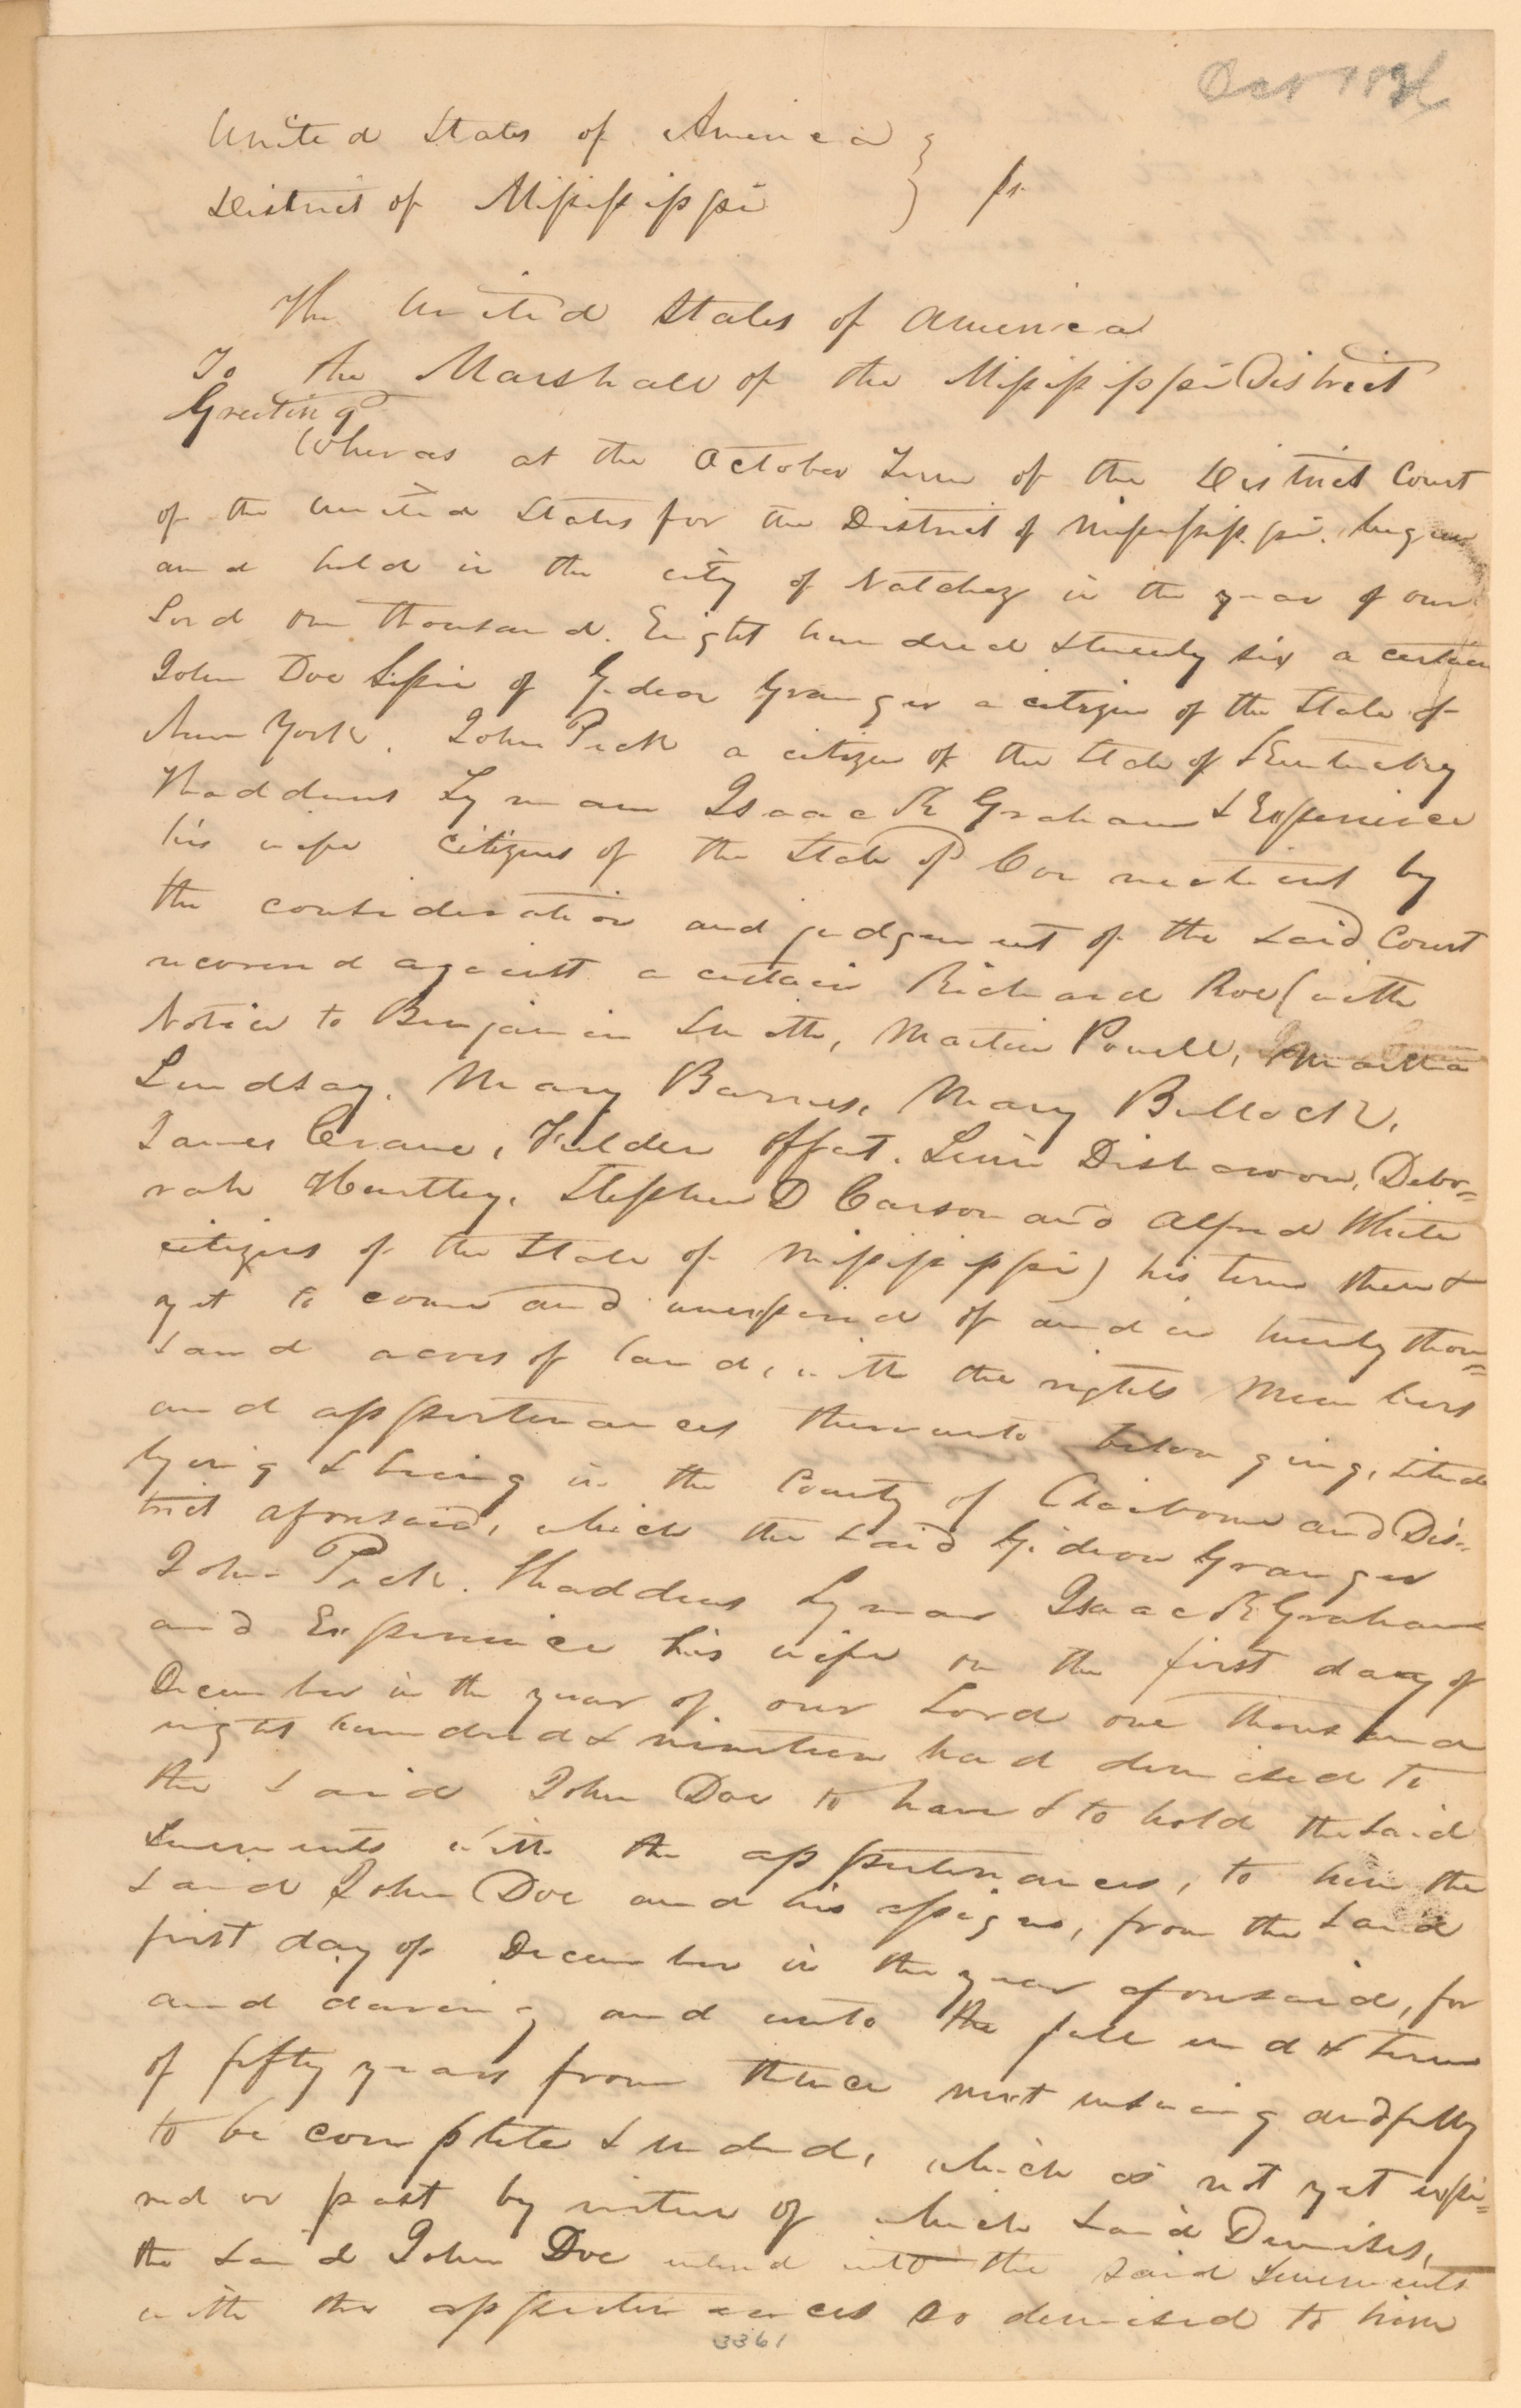 Oct 1826
United States of America }
District of Mississippi } ss.
The United States of America
To the Marshall of the Mississippi District
Greeting
Whereas at the October Term of the District Court
of the United States for the District of Mississippi. begun
and held in the city of Natchez in the year of our
Lord one thousand. Eight hundred & twenty six a certain
John Doe Lessee of Gideon Granger a citizen of the State of
New York. John Peck a citizen of the State of Kentucky
Thaddeus Lyman Isaac R Graham & Experience
his wife citizens of the State of Connecticut by
the consideration and judgement of the said Court
recovered against a certain Richard Roe (with
Notice to Benjamin Smith, Martin Powell, Martha
Lindsay, Mary Barnes, Mary Bullock,
James Crane, Fielder Offat. Levin Disharoon, Debo=
rah Huntley, Stephen D Carson and Alfred White
citizens of the State of Mississippi) his term then &
yet to come and unexpired of and in twenty thou=
sand acres of land, with the rights members
and appertenances thereunto belonging, situate
lying & being in the County of Claiborne and Dis=
trict aforesaid, which the said Gideon Granger
John Peck. Thaddeus Lyman Isaac R Graham
and Experience his wife on the first day of
December in the year of our Lord one thousand
eight hundred & nineteen had demised to
the said John Doe to have & to hold the said
tenements with the appertenances, to him the
said John Doe and his assigns, from the said
first day of December in the year aforesaid, for
and during and unto the full end & term
of fifty years from thence next ensuing and fully
to be complete & ended, which is not yet expi=
red or past by virtue of which said Demises,
the said John Doe entered into the said tenements
with the appertenances so demised to him
3361